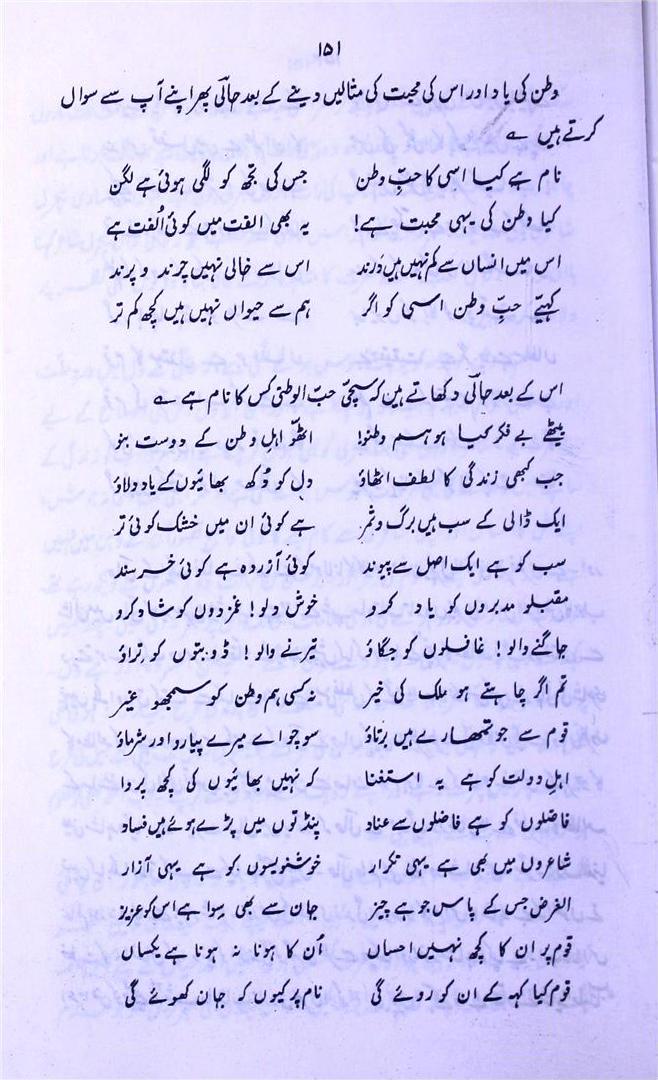 ۱۵۱
وطن کی یاد اور اس کی محبت کی مثالیں دینے کے بعد حالیؔ پھر اپنے آپ سے سوال
کرتے ہیں ؎
نام ہے کیا اسی کا حبِّ وطن جس کی تجھ کو لگی ہوئی ہے لگن
کیا وطن کی یہی محبت ہے! یہ بھی الفت میں کوئی اُلفت ہے
اس میں انساں سے کم نہیں ہیں درند اس سے خالی نہیں چرند و پرند
کہیئے حبِّ وطن اسی کو اگر ہم سے حیواں نہیں ہیں کچھ کم تر
اس کے بعد حالیؔ دکھاتے ہیں کہ سچی حبّ الوطنی کس کا نام ہے ؎
بیٹھے بے فکر کیا ہو ہم وطنو! اٹھو اہلِ وطن کے دوست بنو
جب کبھی زندگی کا لطف اٹھاؤ دل کو دُکھ بھائیوں کے یاد دلاؤ
ایک ڈالی کے سب ہیں برگ و ثمر ہے کوئی ان میں خشک کوئی تر
سب کو ہے ایک اصل سے پیوند کوئی آزردہ ہے کوئی خرسند
مقبلو مدبروں کو یاد کرو خوش دلو! غمزدوں کو شاد کرو
جاگنے والو! غافلوں کو جگاؤ تیرنے والو! ڈوبتوں کو تراؤ
تم اگر چاہتے ہو ملک کی خیر نہ کسی ہم وطن کو سمجھو غیر
قوم سے جو تمہارے ہیں برتاؤ سوچو اے میرے پیارو اور شرماؤ
اہلِ دولت کو ہے یہ استغنا کہ نہیں بھائیوں کی کچھ پروا
فاضلوں کو ہے فاضلوں سے عناد پنڈتوں میں پڑے ہوئے ہیں فساد
شاعروں میں بھی ہے یہی تکرار خوشنویسوں کو ہے یہی آزار
الغرض جس کے پاس جو ہے چیز جان سے بھی سوا ہے اس کو عزیز
قوم پر ان کا کچھ نہیں احساں اُن کا ہونا نہ ہونا ہے یکساں
قوم کیا کہہ کے ان کو روئے گی نام پر کیوں کہ جان کھوئے گی